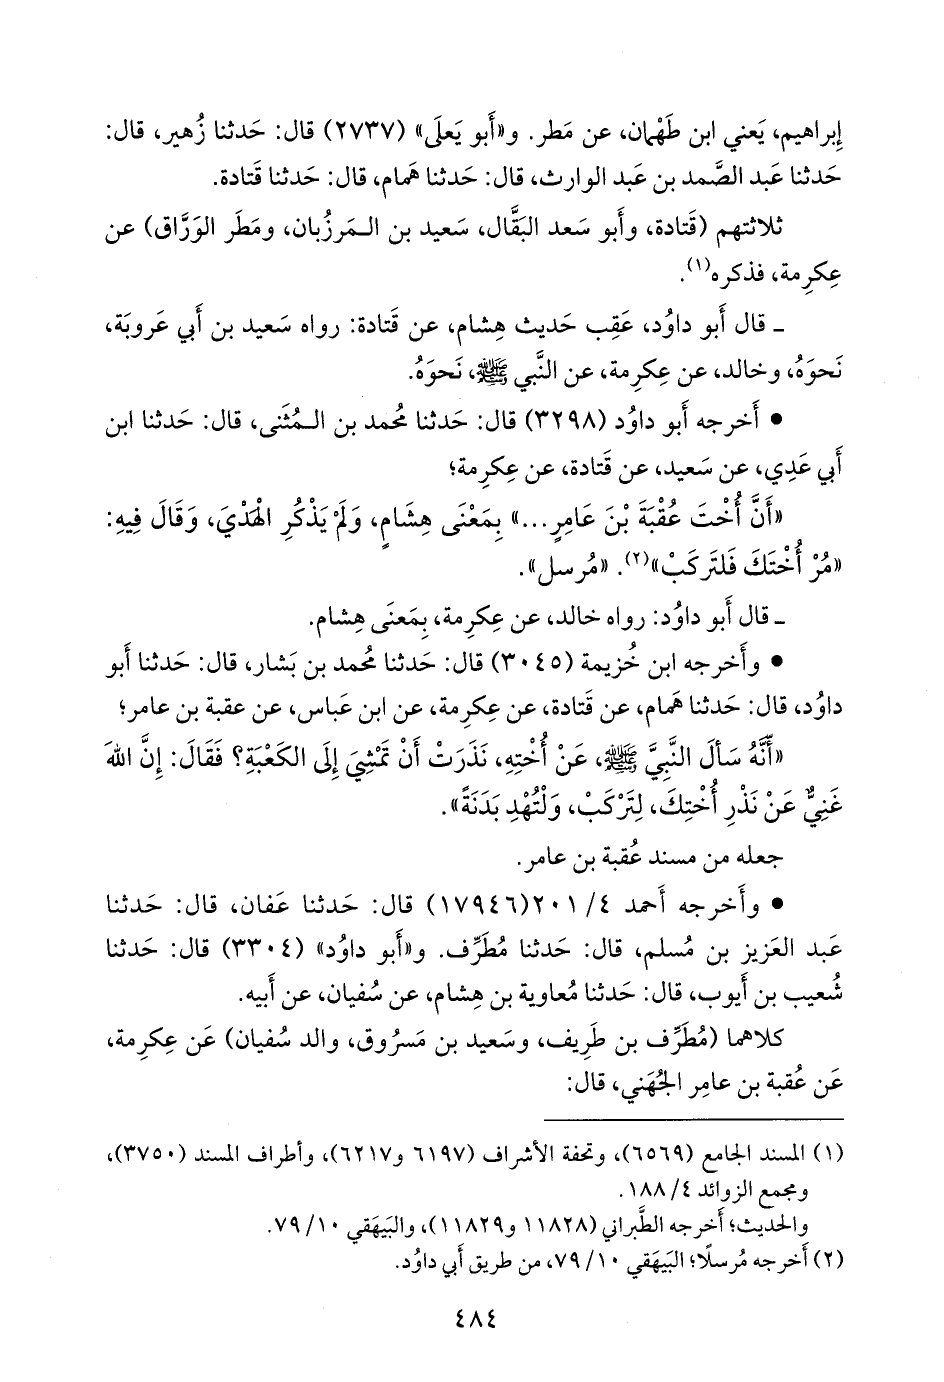 إِبراهيم، يَعني ابن طَهْمان، عن مَطر. و«أَبو يَعلَى» (٢٧٣٧) قال: حَدثنا زُهير، قال:
حَدثنا عَبد الصَّمد بن عَبد الوارث، قال: حَدثنا هَمام، قال: حَدثنا قَتادة.
ثلاثتهم (قَتادة، وأَبو سَعد البَقَّال، سَعيد بن الـمَرزُبان، ومَطَر الوَرَّاق) عن
عِكرِمة، فذكره(١).
ـ قال أَبو داوُد، عَقِب حَديث هِشام، عن قَتادة: رواه سَعيد بن أَبي عَروبَة،
نَحوَهُ، وخالد، عن عِكرِمة، عن النَّبي ﷺ، نَحوَهُ.
• أَخرجه أَبو داوُد (٣٢٩٨) قال: حَدثنا مُحمد بن الـمُثنى، قال: حَدثنا ابن
أَبي عَدِي، عن سَعيد، عن قَتادة، عن عِكرِمة؛
«أَنَّ أُخْتَ عُقْبَةَ بْنَ عَامِرٍ...» بِمَعْنَى هِشَامٍ، وَلَمْ يَذْكُرِ الْهَدْيَ، وَقَالَ فِيهِ:
«مُرْ أُخْتَكَ فَلتَركَبْ»(٢). «مُرسل».
ـ قال أَبو داوُد: رواه خالد، عن عِكرِمة، بِمَعنَى هِشام.
• وأَخرجه ابن خُزيمة (٣٠٤٥) قال: حَدثنا مُحمد بن بَشار، قال: حَدثنا أَبو
داوُد، قال: حَدثنا هَمام، عن قَتادة، عن عِكرِمة، عن ابن عَباس، عن عقبة بن عامر؛
«أَنَّهُ سَأَلَ النَّبِيَّ ﷺ، عَنْ أُخْتِهِ، نَذَرَتْ أَنْ تَمْشِيَ إِلَى الكَعْبَةِ؟ فَقَالَ: إِنَّ اللهَ
غَنِيٌّ عَنْ نَذْرِ أُخْتِكَ، لِتَرْكَبْ، وَلْتُهْدِ بَدَنَةً».
جعله من مسند عُقبة بن عامر.
• وأَخرجه أَحمد ٤/٢٠١(١٧٩٤٦) قال: حَدثنا عَفان، قال: حَدثنا
عَبد العَزيز بن مُسلم، قال: حَدثنا مُطَرِّف. و«أَبو داوُد» (٣٣٠٤) قال: حَدثنا
شُعيب بن أَيوب، قال: حَدثنا مُعاوية بن هِشام، عن سُفيان، عن أَبيه.
كلاهما (مُطَرِّف بن طَريف، وسَعيد بن مَسرُوق، والد سُفيان) عَن عِكرِمة،
عَن عُقبة بن عامِر الجُهَني، قال:
(١) المسند الجامع (٦٥٦٩)، وتحفة الأشراف (٦١٩٧ و٦٢١٧)، وأطراف المسند (٣٧٥٠)،
ومجمع الزوائد ٤/١٨٨.
والحديث؛ أخرجه الطَّبراني (١١٨٢٨ و١١٨٢٩)، والبَيهَقي ١٠/٧٩.
(٢) أَخرجه مُرسلًا؛ البَيهَقي ١٠/٧٩، من طريق أَبي داوُد.
٤٨٤